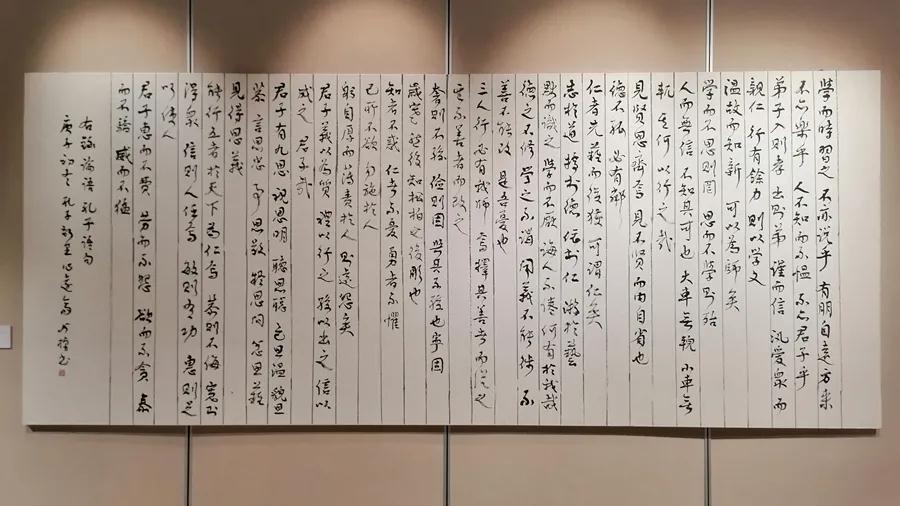 學而時習之 不亦說乎 有朋自遠方來
不亦樂乎 人不知而不愠 不亦君子乎
弟子入則孝 出則弟 謹而信 汎愛衆 而
親仁 行有餘力 則以學文
温故而知新 可以為師矣
學而不思則罔 思而不學則殆
人而無信 不知其可也 大車無輗 小車無
軏 其何以行之哉
見賢思齊焉 見不賢而内自省也
德不孤 必有鄰
仁者先難而後獲 可謂仁矣
志於道 據於德 依於仁 游於藝
默而識之 學而不厭 誨人不倦 何有於我哉
德之不修 學之不講 聞義不能徙 不
善不能改 是吾憂也
三人行 必有我師焉 擇其善者而從之
其不善者而改之
奢則不孫 儉則固 與其不孫也寧固
歲寒 然後知松柏之後彫也
知者不惑 仁者不憂 勇者不懼
己所不欲 勿施於人
躬自厚而薄責於人 則遠怨矣
君子義以為質 禮以行之 孫以出之 信以
成之 君子哉
君子有九思 視思明 聽思聰 色思温 貌思
恭 言思忠 事思敬 疑思問 忿思難
見得思義
能行五者於天下 為仁焉 恭則不侮 寬則
得衆 信則人任焉 敏則有功 惠則足
以使人
君子惠而不費 勞而不怨 欲而不貪 泰
而不驕 威而不猛
右錄論語 孔子語句
庚子初